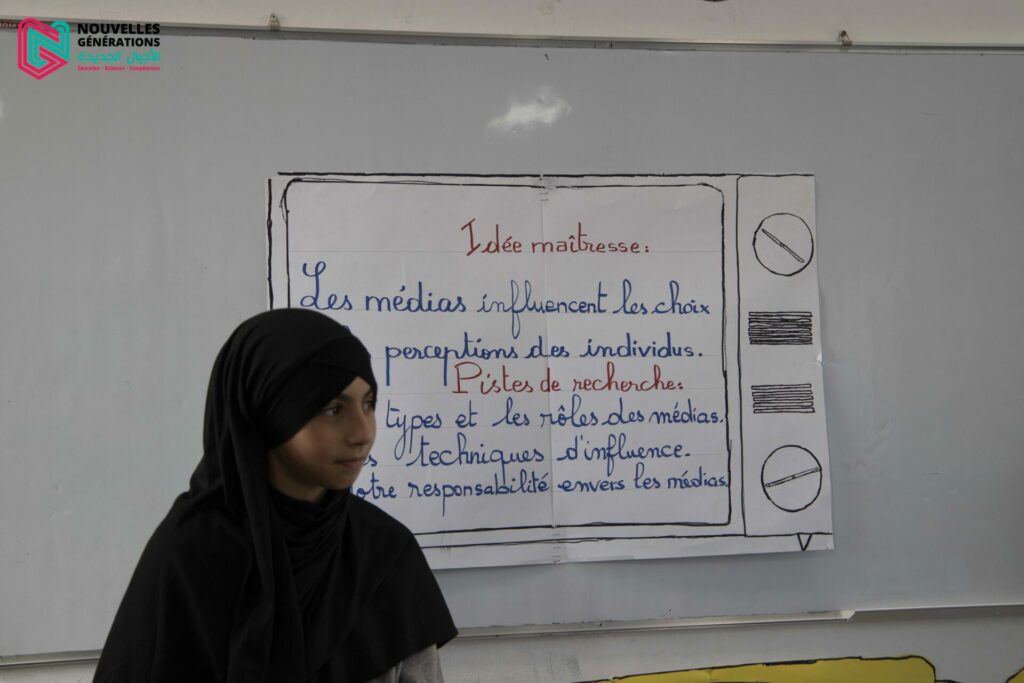 NOUVELLES
GÉNÉRATIONS
الأجيال الجديدة
Éducation - Sciences - Compétences
Idée maîtresse:
Les médias influencent les choix
perceptions des individus.
Pistes de recherche:
types et les rôles des médias.
techniques d'influence.
responsabilité envers les médias.